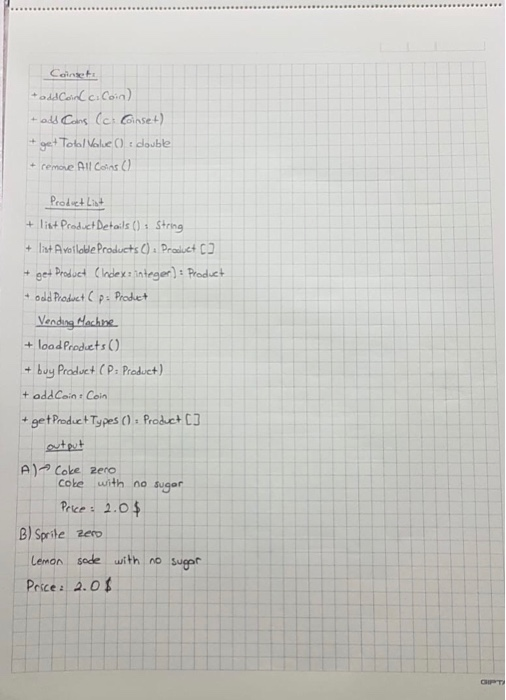 Coinset:
+ addCoin(c: Coin)
+ add Coins (c: Coinset)
+ get Total Value () : double
+ remove All Coins ()
Product List
+ list Product Details () : String
+ list Available Products () : Product []
+ get Product (Index: integer) : Product
+ add Product ( p: Product
Vending Machine
+ load Products ()
+ buy Product (P: Product)
+ addCoin: Coin
+ get Product Types () : Product []
output
A) → Coke zero
coke with no sugar
Price : 2.0 $
B) Sprite zero
Lemon sode with no sugar
Price : 2.0 $